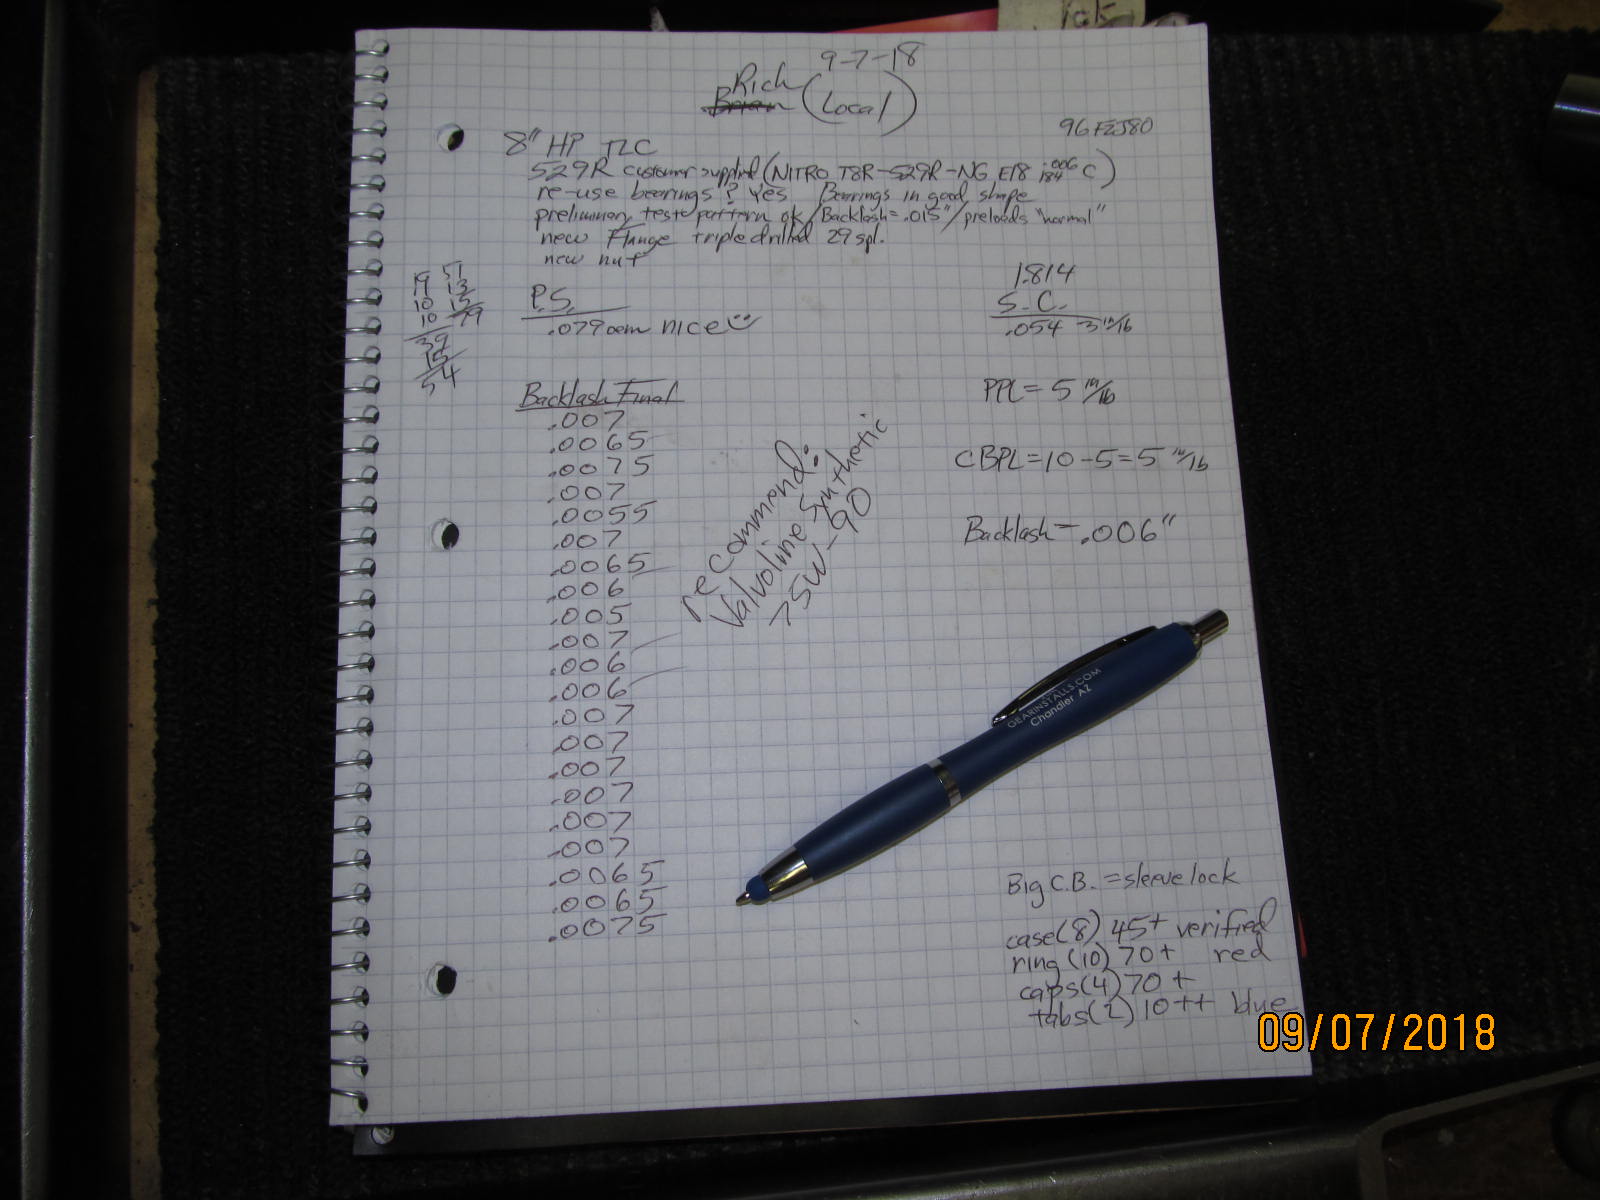 9-7-18
Rich
(Local)
96 FZJ80
8" HP TLC
529R customer supplied (NITRO T8R-529R-NG E18 .006 184 C)
re-use bearings? Yes Bearings in good shape
preliminary test pattern ok/Backlash=.015"/preloads "normal"
new Flange triple drilled 29 spl.
new nut
19 51
10 13
10 15
39 79
15
54
P.S.
.079 oem nice
1.814
S.C.
.054 3 in/lb
PPL=5 in/lb
CBPL=10-5=5 in/lb
Backlash-.006"
Backlash Final
.007
.0065
.0075
.007
.0055
.007
.0065
.006
.005
.007
.006
.006
.007
.007
.007
.007
.007
.007
.0065
.0065
.0075
recommend:
Valvoline Synthetic
75W-90
GEARINSTALLS.COM
Chandler AZ
Big C.B. = sleeve lock
case(8) 45+ verified
ring(10) 70+ red
caps(4) 70+
tabs(2) 10++ blue
09/07/2018